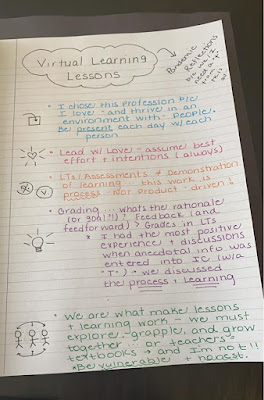 Virtual Learning
Lessons
Pandemic
Reflections
• I chose this profession b/c
I love and thrive in an
environment with People.
Be present each day w/ each
person
• Lead w/ Love - assume best
effort + intentions (always)
• LTs / Assessments + Demonstration
of learning - this work is
process not product - driven!
• Grading - what's the rationale
(or goal?!)? Feedback (and
feedforward) > Grades in LTs
* I had the most positive
experience + discussions
when anecdotal info was
entered into IC (w/a
"I") → we discussed
the process + learning
• We are what make lessons
+ learning work - we must
explore, grapple, and grow
together... or teachers =
textbooks → and I'm not!!
*Be vulnerable + honest.